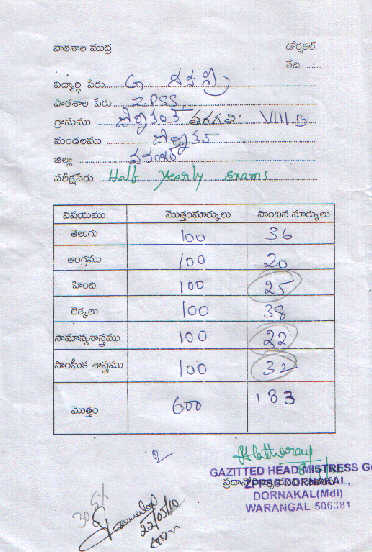 పాఠశాల ముద్ర డోర్నకల్
తేది ......
విద్యార్థి పేరు
పాఠశాల పేరు ZPSS
గ్రామము డోర్నకల్ తరగతి: VIII B
మండలము డోర్నకల్
జిల్లా వరంగల్
పరీక్షపేరు Half Yearly Exams
విషయము మొత్తంమార్కులు పొందిన మార్కులు
తెలుగు 100 36
ఆంగ్లము 100 20
హింది 100 25
లెక్కలు 100 38
సామాన్యశాస్త్రము 100 22
సాంఘీక శాస్త్రము 100 32
మొత్తం 600 183
GAZITTED HEAD MISTRESS G
ZPPSS DORNAKAL,
DORNAKAL(Mdl)
WARANGAL 506381